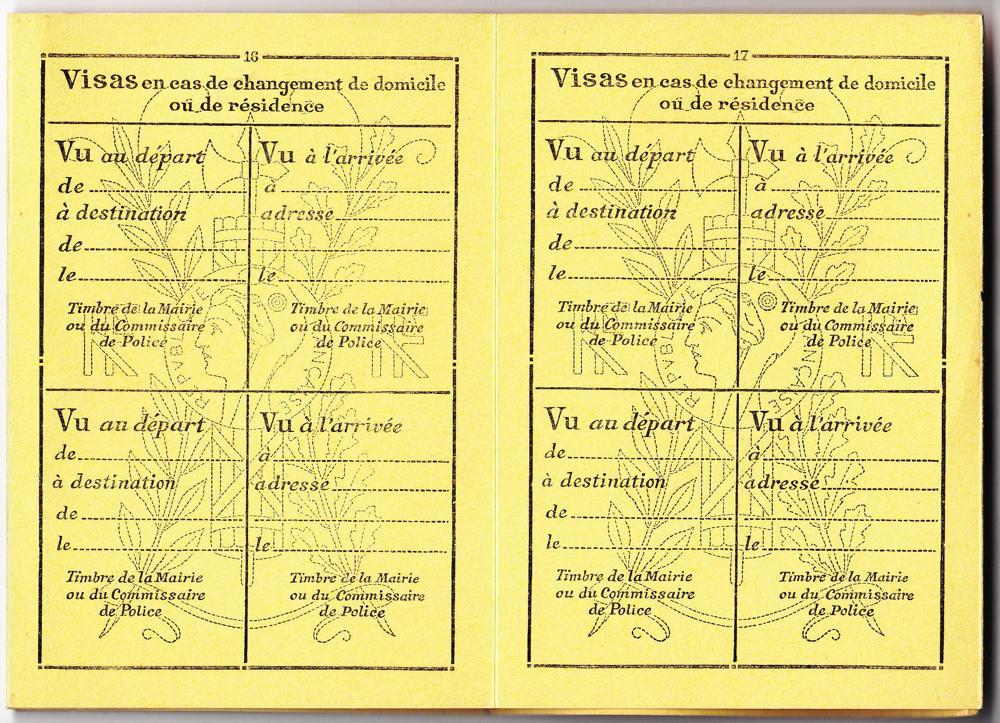 16
Visas en cas de changement de domicile
ou de résidence
Vu au départ
de
à destination
de
le
Timbre de la Mairie
ou du Commissaire
de Police
Vu à l'arrivée
à
adresse
le
Timbre de la Mairie
ou du Commissaire
de Police
Vu au départ
de
à destination
de
le
Timbre de la Mairie
ou du Commissaire
de Police
Vu à l'arrivée
à
adresse
le
Timbre de la Mairie
ou du Commissaire
de Police
RF
RF
REPVBLIQVE
FRANÇAISE
17
Visas en cas de changement de domicile
ou de résidence
Vu au départ
de
à destination
de
le
Timbre de la Mairie
ou du Commissaire
de Police
Vu à l'arrivée
à
adresse
le
Timbre de la Mairie
ou du Commissaire
de Police
Vu au départ
de
à destination
de
le
Timbre de la Mairie
ou du Commissaire
de Police
Vu à l'arrivée
à
adresse
le
Timbre de la Mairie
ou du Commissaire
de Police
RF
RF
REPVBLIQVE
FRANÇAISE